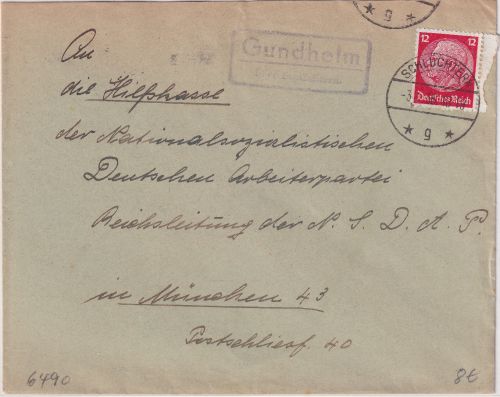 g
Gundhelm
12 12
SCHLÜCHTERN
Deutsches Reich
g
An
die Hilfskasse
der Nationalsozialistischen
Deutschen Arbeiterpartei
Reichsleitung der N. S. D. A. P.
in München 43
Postschliesf. 40
6490
8€